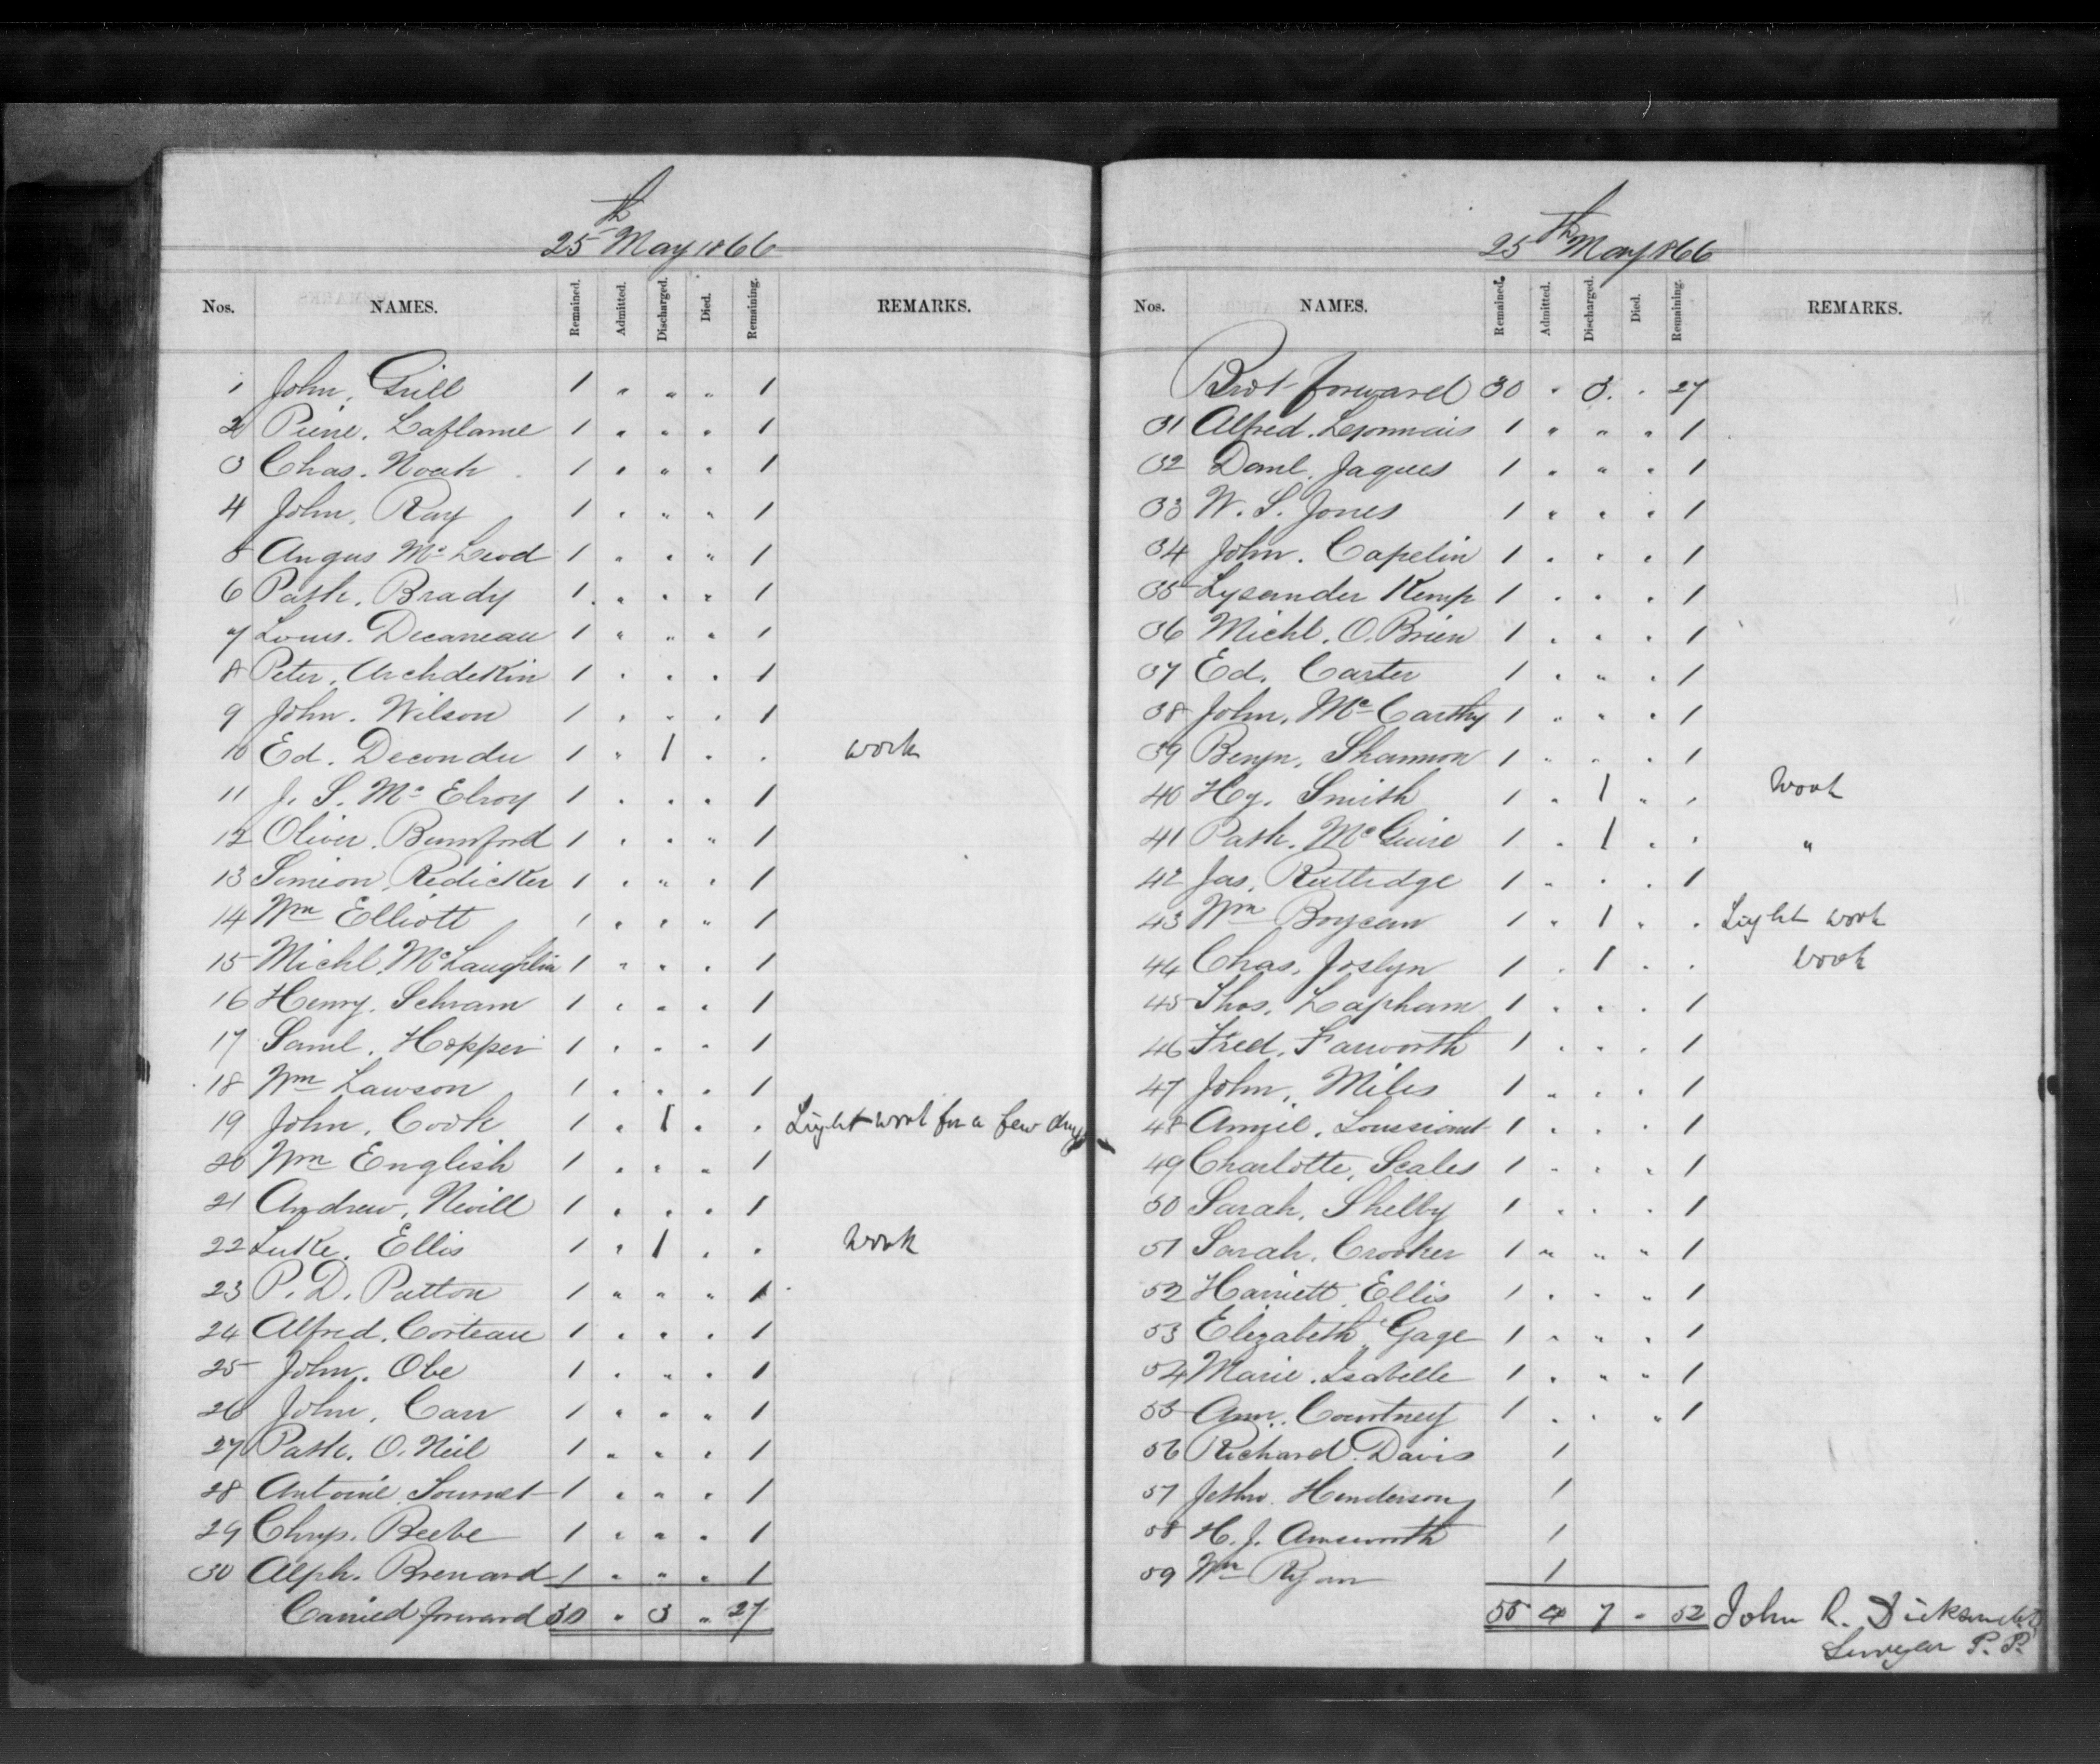 25th May 1866
Nos. NAMES. Remained. Admitted. Discharged. Died. Remaining. REMARKS.
1 John, Grill 1 " " " 1
2 Pierre, Laflame 1 " " " 1
3 Chas. Noah 1 " " " 1
4 John, Ray 1 " " " 1
5 Angus McLeod 1 " " " 1
6 Patk. Brady 1 " " " 1
7 Louis. Decaneau 1 " " " 1
8 Peter, Archdekin 1 " " " 1
9 John. Wilson 1 " " " 1
10 Ed. Decondu 1 " 1 " " work
11 J. S. McElroy 1 " " " 1
12 Oliver. Bumford 1 " " " 1
13 Simeon, Redicker 1 " " " 1
14 Wm Elliott 1 " " " 1
15 Michl. McLaughlin 1 " " " 1
16 Henry. Schram 1 " " " 1
17 Saml. Hopper 1 " " " 1
18 Wm Lawson 1 " " " 1
19 John, Cook 1 " 1 " " Light work for a few days
20 Wm English 1 " " " 1
21 Andrew, Nevill 1 " " " 1
22 Luke, Ellis 1 " 1 " " Work
23 P. D. Patton 1 " " " 1
24 Alfred, Corteau 1 " " " 1
25 John. Obe 1 " " " 1
26 John, Carr 1 " " " 1
27 Patk. O. Neil 1 " " " 1
28 Antoine, 1 " " " 1
29 Chrys. Beebe 1 " " " 1
30 Alph. Brenard 1 " " " 1
Carried forward 30 " 3 " 27
25th May 1866
Nos. NAMES. Remained. Admitted. Discharged. Died. Remaining. REMARKS.
Brot forward 30 " 3 " 27
31 Alfred. 1 " " " 1
32 Danl. Jaques 1 " " " 1
33 W. S. Jones 1 " " " 1
34 John. Capelin 1 " " " 1
35 Lysander Kemp 1 " " " 1
36 Michl. O. Brien 1 " " " 1
37 Ed. Carter 1 " " " 1
38 John, McCarthy 1 " " " 1
39 Benjn. Shannon 1 " " " 1
40 Hy. Smith 1 " 1 " " Work
41 Patk. McGuire 1 " 1 " " "
42 Jas. Rutledge 1 " " " 1
43 Wm Boyceau 1 " 1 " " Light work
44 Chas. Joslyn 1 " 1 " " work
45 Thos. Lapham 1 " " " 1
46 Fred. Farworth 1 " " " 1
47 John, Miles 1 " " " 1
48 1 " " " 1
49 Charlotte, Scales 1 " " " 1
50 Sarah, Shelby 1 " " " 1
51 Sarah. Crooker 1 " " " 1
52 Harriett Ellis 1 " " " 1
53 Elizabeth Gage 1 " " " 1
54 Marie. Isabelle 1 " " " 1
55 Ann. Courtney 1 " " " 1
56 Richard. Davis 1
57 Jethro. Henderson 1
58 H. J. Amsworth 1
59 Wm Ryan 1
55 4 7 " 52 John R. Dickson M.D.
Surgeon P. P.